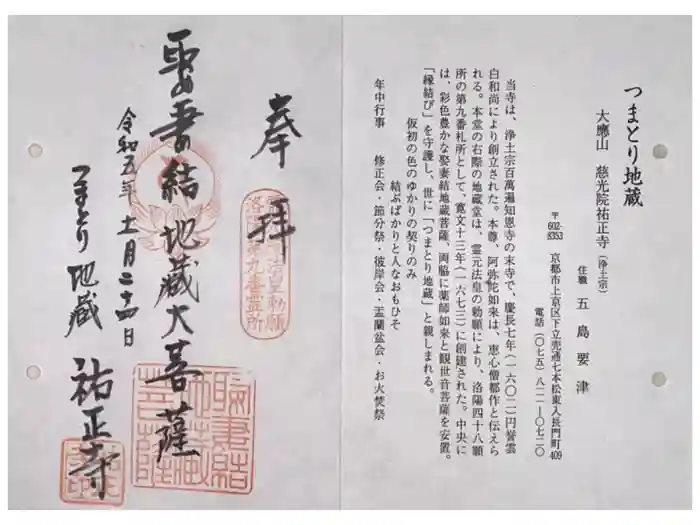 つまとり地蔵
大應山　慈光院祐正寺（浄土宗）
住職　五島要津
〒602-8353　京都市上京区下立売通七本松東入長門町409
電話（〇七五）八二一―〇七二〇
当寺は、浄土宗百萬遍知恩寺の末寺で、慶長七年（一六〇二）円誉雲
白和尚により創立された。本尊、阿弥陀如来は、恵心僧都作と伝えら
れる。本堂の右際の地蔵堂は、霊元法皇の勅願により、洛陽四十八願
所の第九番札所として、寛文十三年（一六七三）に創建された。中央に
は、彩色豊かな娶妻結地蔵菩薩、両脇に薬師如来と観世音菩薩を安置。
「縁結び」を守護し、世に「つまとり地蔵」と親しまれる。
仮初の色のゆかりの契りのみ
結ぶばかりと人なおもひそ
年中行事　修正会・節分祭・彼岸会・盂蘭盆会・お火焚祭
奉拝
妻結地蔵大菩薩
令和五年十一月二十四日
つまとり地蔵　祐正寺